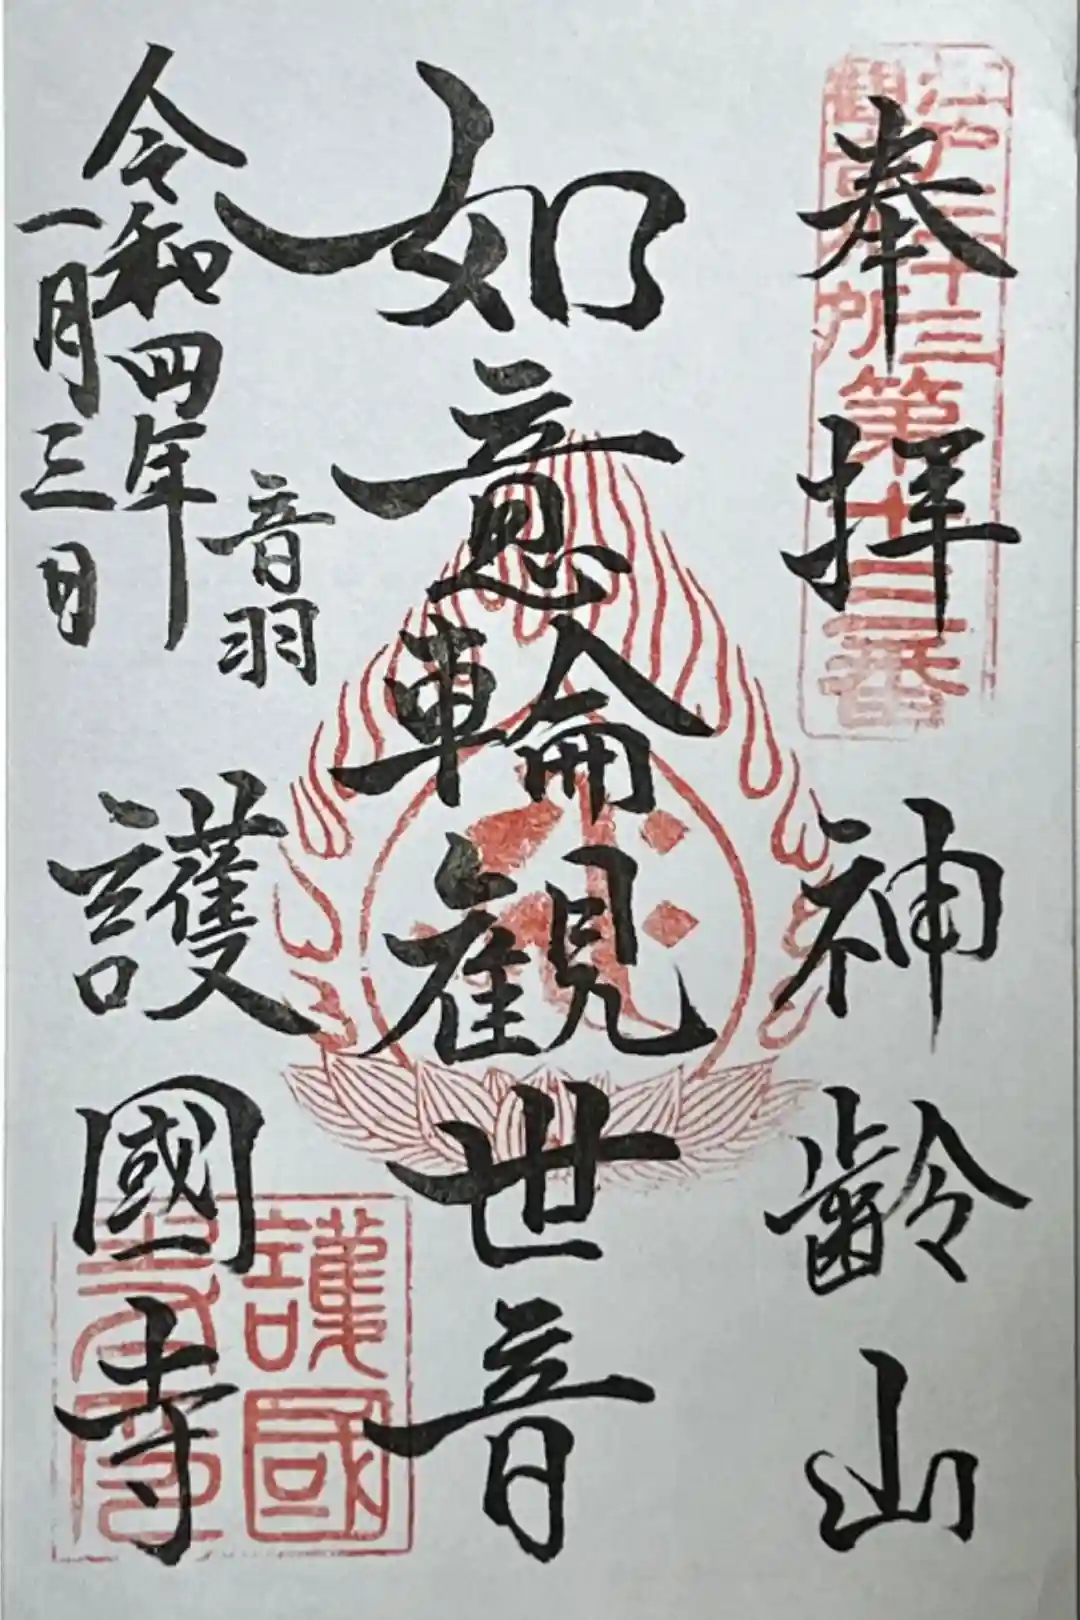 奉拝
神齢山
江戸三十三
観音札所
第十三番
如意輪観世音
音羽
護國寺
令和四年
一月三日
護國
寺印